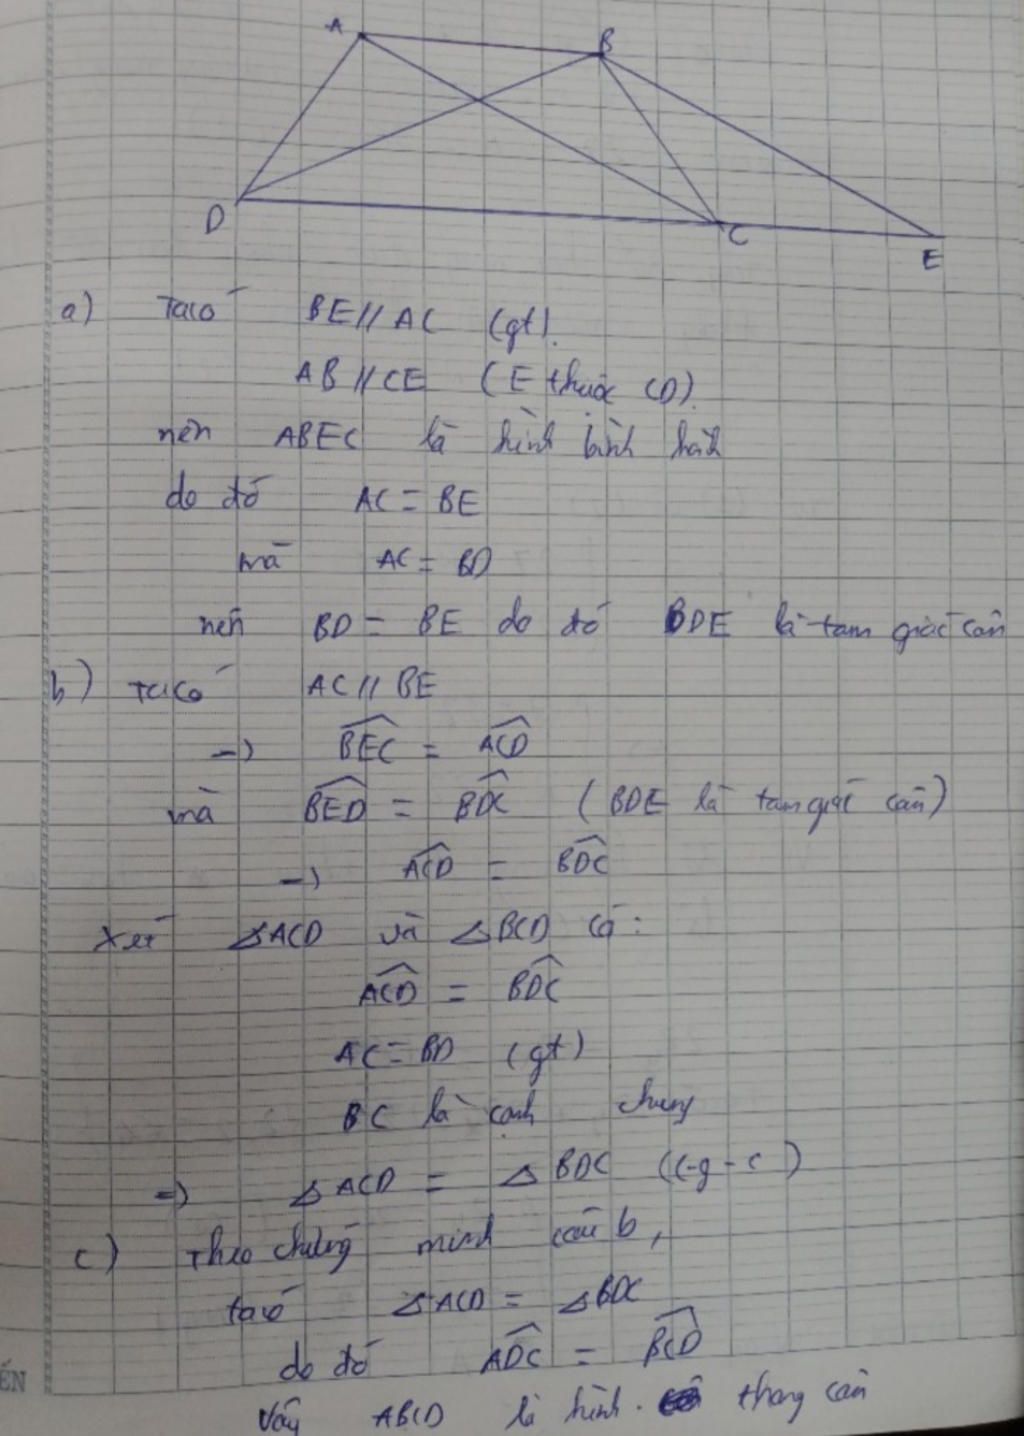 A
B
D
C
E
a) Ta có BE // AC (gt).
AB // CE (E thuộc CD).
nên ABEC là hình bình hành
do đó AC = BE
mà AC = BD
nên BD = BE do đó BDE là tam giác cân
b) Ta có AC // BE
=) \widehat{BEC} = \widehat{ACD}
mà \widehat{BED} = \widehat{BDC} (BDE là tam giác cân)
=) \widehat{ACD} = \widehat{BDC}
Xét ΔACD và ΔBCD có:
\widehat{ACD} = \widehat{BDC}
AC = BD (gt)
BC là cạnh chung
=) Δ ACD = Δ BDC (c-g-c)
c) Theo chứng minh câu b,
ta có ΔACD = ΔBDC
do đó \widehat{ADC} = \widehat{BCD}
Vậy ABCD là hình thang cân
ẾN